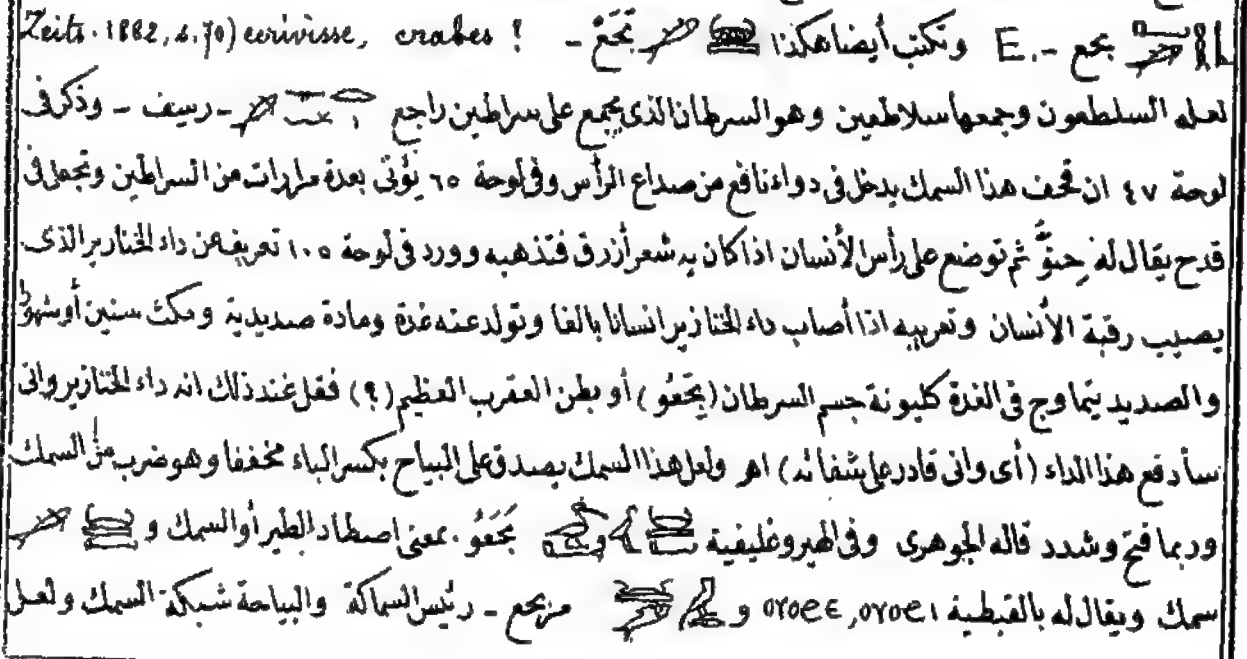 بحع -. E وتكتب أيضا هكذا بَحَعُ - Zeits. 1882, s. 70) ecrivisse, crabes !
لعله السلطعون وجمعها سلاطعين وهو السرطان الذى يجمع على سراطين راجع - رسيف - وذكر فى
لوحة ٤٧ ان قحف هذا السمك يدخل فى دواء نافع من صداع الرأس وفى لوحة ٦٥ يؤتى بعدة مرارات من السراطين وتجعل فى
قدح يقال له حِنوَّ ثم توضع على رأس الأنسان اذا كان به شعر أزرق فتذهبه وورد فى لوحة ١٠٥ تعريف عن داء الخنازير الذى
يصيب رقبة الأنسان وتعريبه اذا أصاب داء الخنازير انسانا بالغا وتولد عنه غدة ومادة صديدية ومكث سنين أو شهورا
والصديد يتماوج فى الغدة كليونة جسم السرطان (بِحَعُو) أو بطن العقرب العظيم (؟) فقل عند ذلك انه داء الخنازير وانى
سأدفع هذا الداء (أى وانى قادر على شفائه) اهـ ولعل هذا السمك يصدق على البياح بكسر الباء مخففا وهو ضرب من السمك
وربما فتح وشدد قاله الجوهرى وفى الهيروغليفية بَحَعُو. بمعنى اصطاد الطير أو السمك و
سمك ويقال له بالقبطية ⲟⲩⲟϩⲉ, ⲟⲩⲟϩⲓ و مربحع - رئيس السماكة والبياحة شبكة السمك ولعل